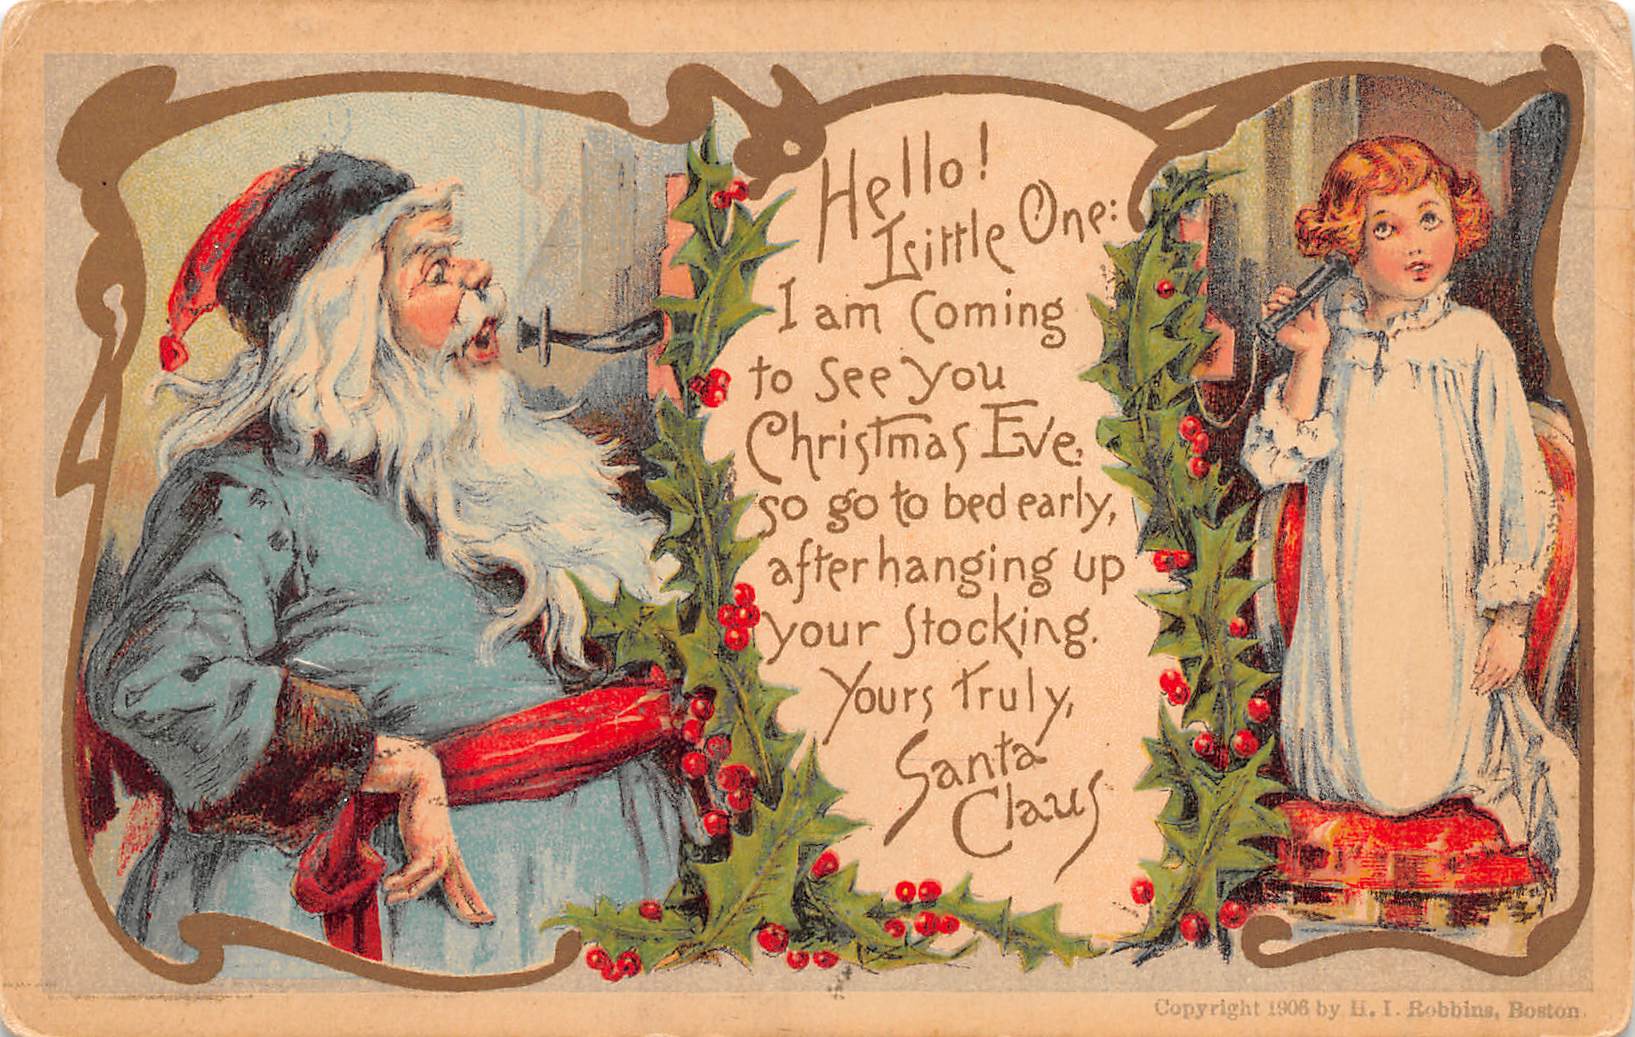 Hello!
Little One:
I am Coming
to See You
Christmas Eve,
so go to bed early,
after hanging up
your Stocking.
Yours Truly,
Santa
Claus
Copyright 1906 by H. I. Robbins, Boston